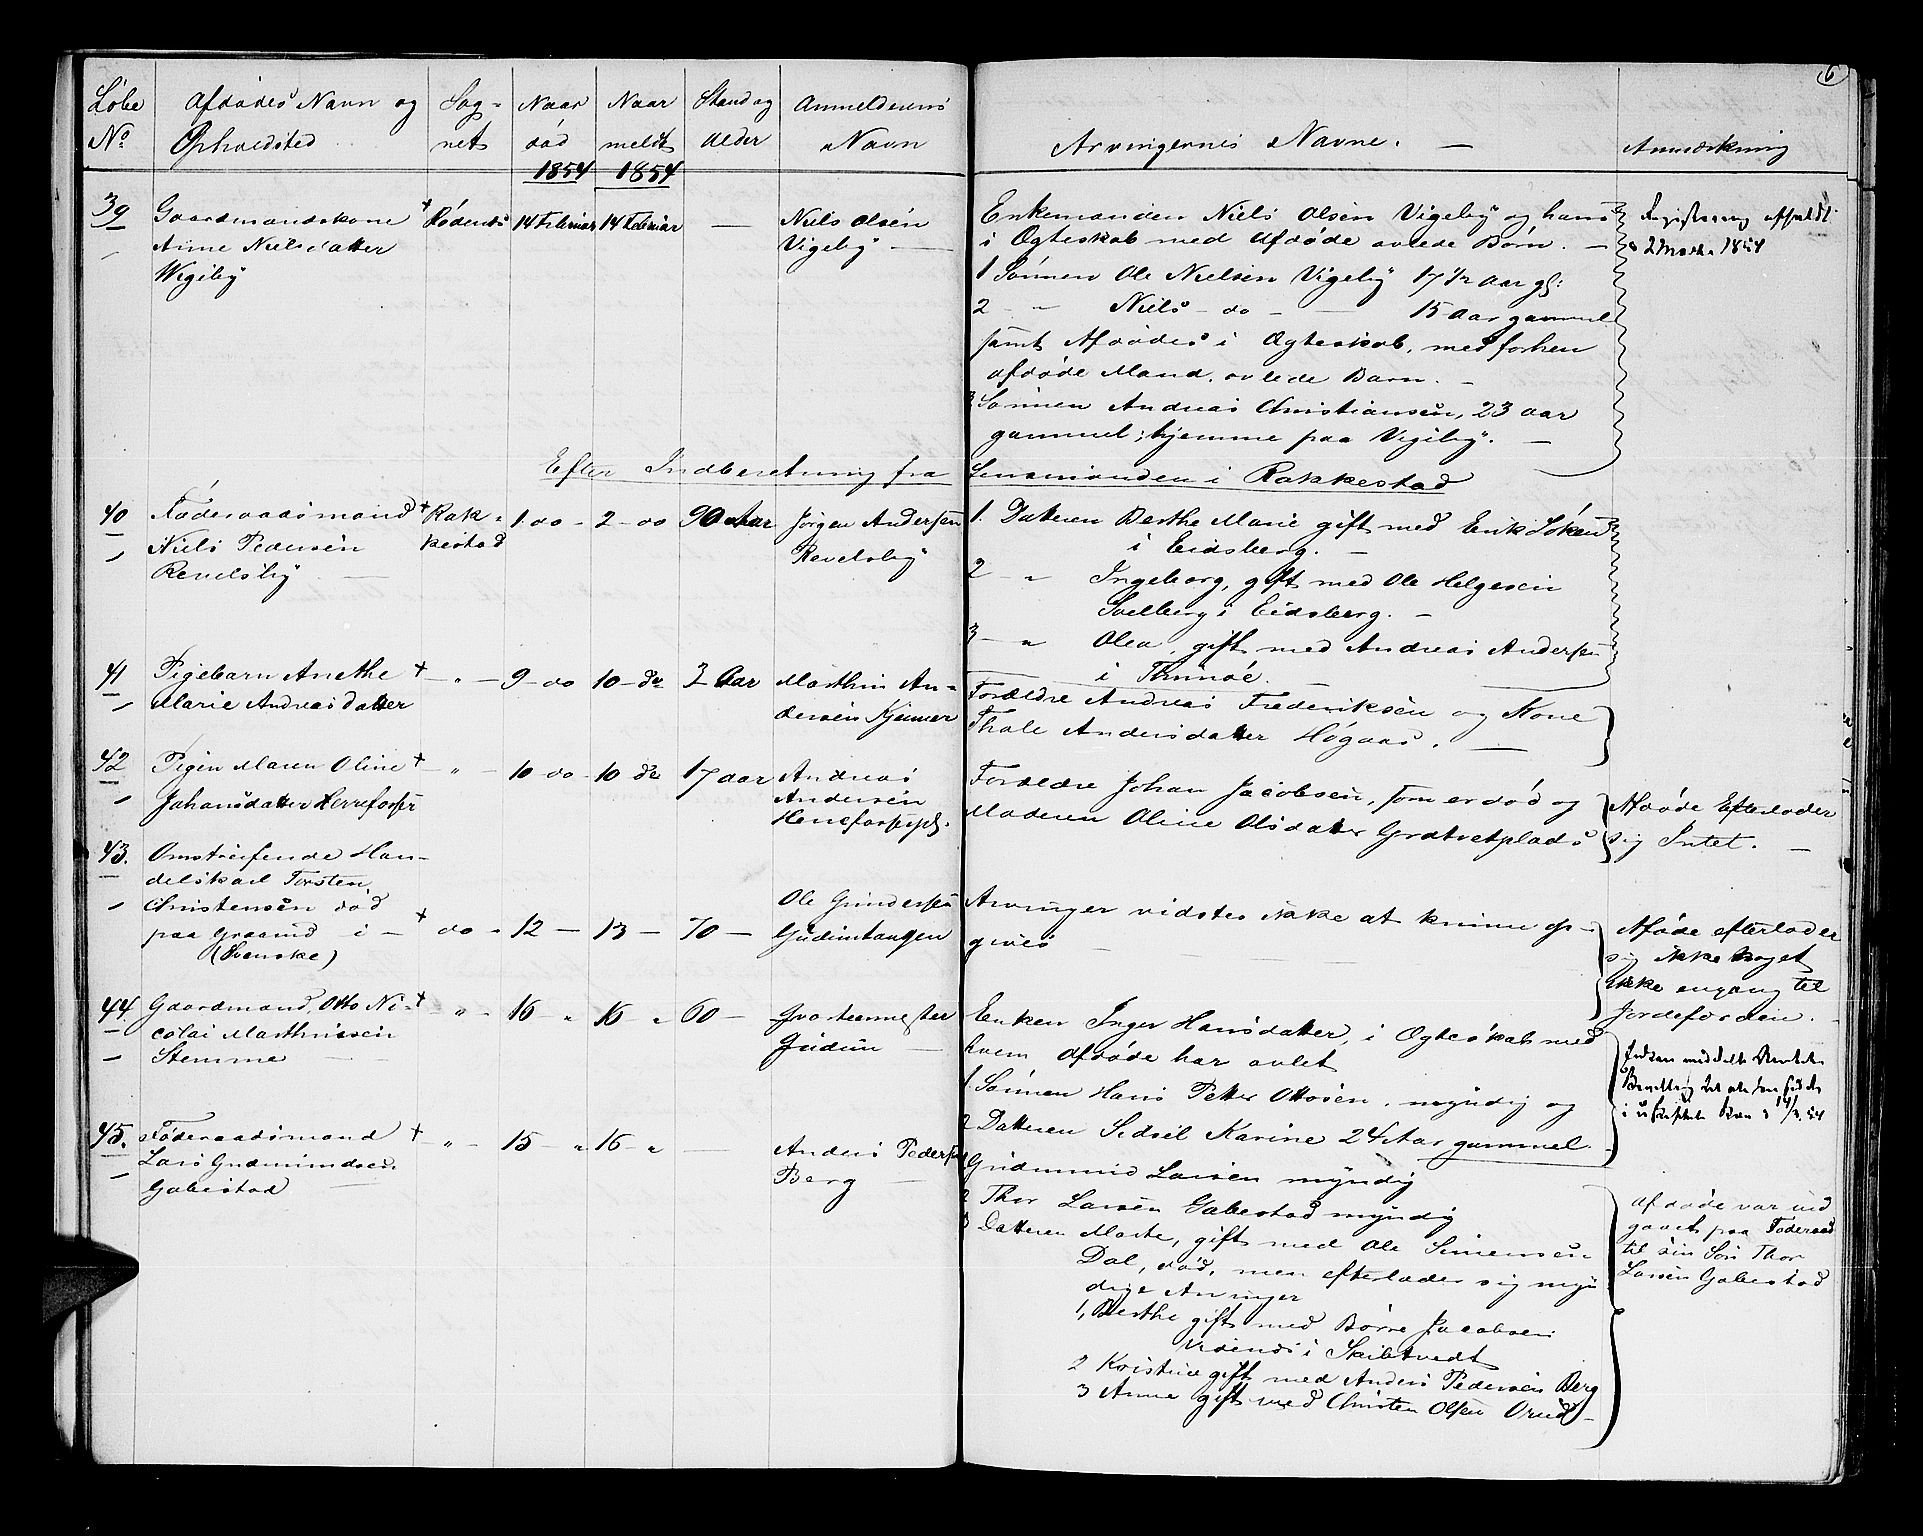 6
Løbe No | Afdødes Navn og Opholdsted | Sognet | Naar død 1854 | Naar meldt 1854 | Stand og Alder | Anmelderens Navn | Arvingernes Navne. — | Anmærkning
39 Gaardmandskone + Rødenæs 14 Februar 14 Februar — Niels Olsen
Anne Nielsdatter Vigeby —
Wigeby
Enkemanden Niels Olsen Vigeby og hans
i Ægteskab med Afdøde avlede Børn. —
1 Sønnen Ole Nielsen Vigeby 17 1/2 Aar gl:
2 - " Niels - do - 15 Aar gammel
samt Afdødes i Ægteskab, med forhen
afdøde Mand, avlede Barn. -
3 Sønnen Andreas Christiansen, 23 aar
gammel; hjemme paa Vigeby. —
Registrering afholdt
2 Marts 1854
Efter Indberetning fra Lensmanden i Rakkestad
40 Føderaadsmand + Rak- 1 do - 2 - do 90 Aar Jørgen Andersen
Niels Pedersen kestad Revelsby
Revelsby —
1. Datteren Berthe Marie gift med Erik Løken
i Eidsberg. —
2 - " Ingeborg, gift med Ole Helgesen
i Eidsberg. —
3 - " Olea, gift med Andreas Andersen
i —
41 Pigebarn Anethe + - " - 9 - do 10 - do 3 Aar Marthin An-
Marie Andreasdatter dersen
Forældre Andreas Frederiksen og Kone
Thale Andersdatter Høgaas. —
42 Pigen Maren Oline + - " - 10 - do - 10 do 17 aar Andreas
Johansdatter Herrefosspl Andersen
Herrefosspl.
Forældre Johan Jacobsen, som er død og
Moderen Oline Olsdatter Gratvetplads
Afdøde Efterlader
sig Intet. —
43. Omstreifende Han-
delskarl Torsten
Christensen død
paa Graarud i - + do - 12 — 13 — 70 — Ole Gundersen
(Svenske) Gudimtangen
Arvinger vidstes ikke at kunne op-
gives —
Afdøde efterlader
sig ikke Noget
ikke engang til
Jordefærden. -
44. Gaardmand, Otto Ni- + " - 16 " 16 " 60 — Qvarteermester
colai Marthinssen Gudim —
Stemme —
Enken Inger Hansdatter, i Ægteskab med
hvem Afdøde har avlet
1. Sønnen Hans Petter Ottosen, myndig og
2 Datteren Sidsel Karine 24 Aar gammel.
i uskiftet Bo 11/3. 54
45. Føderaadsmand + - " - 15 - " 16 - " — Anders Pedersen
Lars Gudmundsen Berg —
Gabestad —
1 Gudmund Larsen myndig
2 Thor Larsen Gabestad myndig
3 Datteren Marte, gift med Ole Simensen
Dal, død, men efterlader sig myn
dige Arvinger
1, Berthe gift med Børre Jacobsen
i Skibtvedt
2 Kristine gift med Anders Pedersen Berg
3 Anne gift med Christen Olsen Orud —
Afdøde var ind
gaaet paa Føderaad
til sin Søn Thor
Larsen Gabestad